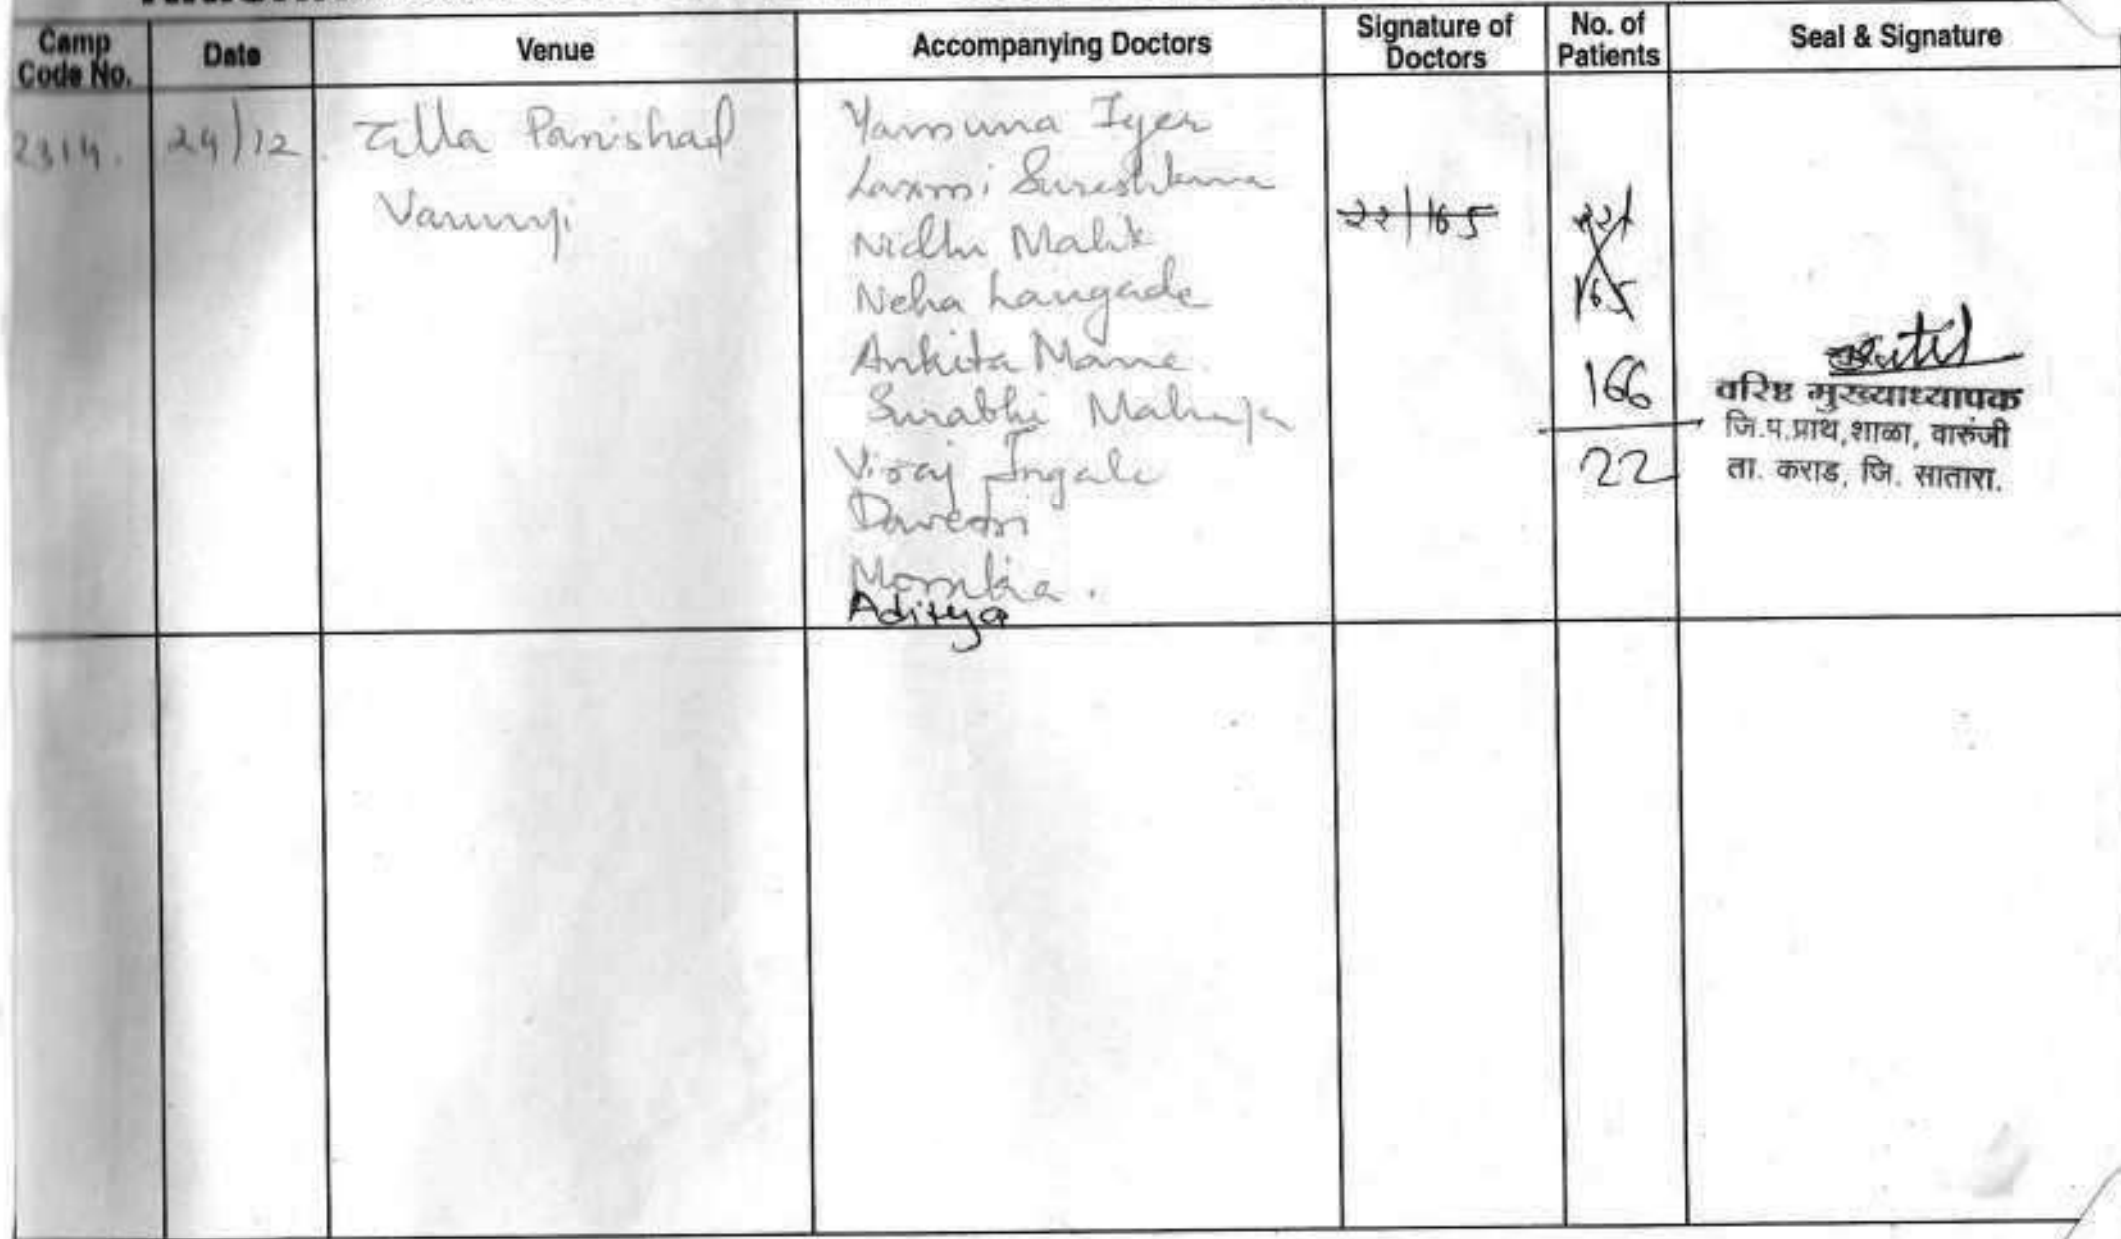 Camp Code No. Date Venue Accompanying Doctors Signature of Doctors No. of Patients Seal & Signature
2314. 24/12. Zilla Parishad
Varunji
Yamuna Iyer
Laxmi Sureshkuma
Nidhi Malik
Neha Langade
Ankita Mane.
Surabhi
Viraj Ingale
Monika.
Aditya
22/165
221
165
166
22
वरिष्ठ मुख्याध्यापक
जि.प.प्राथ,शाळा, वारुंजी
ता. कराड, जि. सातारा.